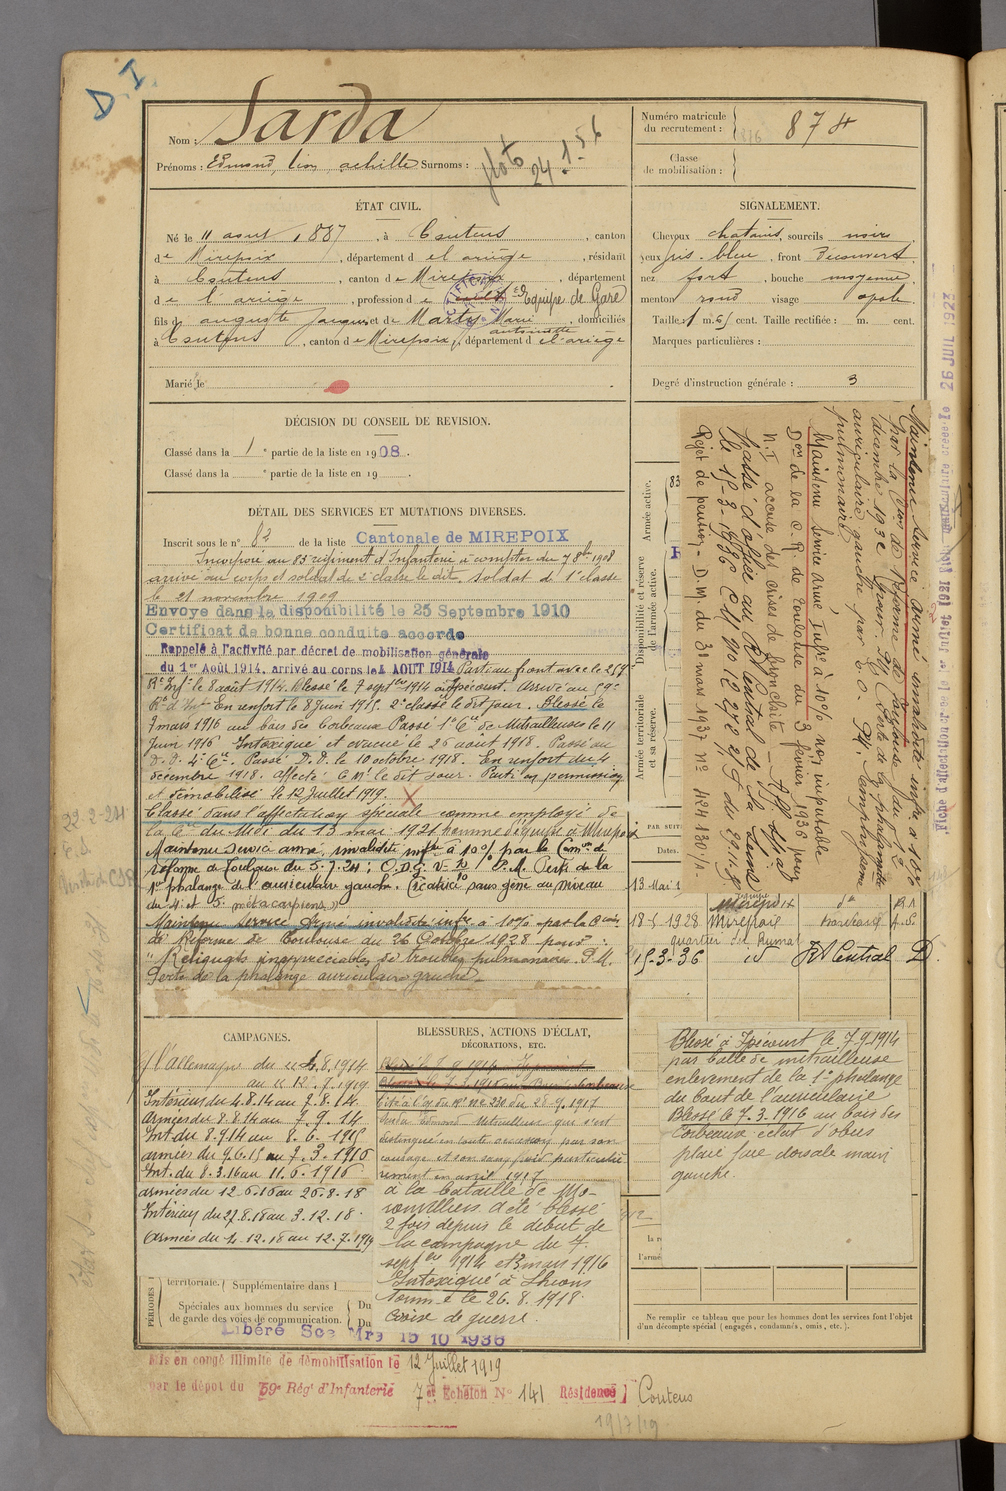 D. I.
Nom : Sarda
Prénoms : Edmond, Léon, Achille Surnoms :
Numéro matricule du recrutement : 874
Classe de mobilisation :
ÉTAT CIVIL.
Né le 11 août 1887, à Coutens, canton
de Mirepoix, département d el ariège, résidant
à Coutens, canton de Mirepoix, département
de l'ariège, profession de Equipe de Gare
fils de auguste Jacques et de Marty Marie antoinette, domiciliés
à Coutens, canton de Mirepoix, département d el'ariège
Marié le
SIGNALEMENT.
Cheveux chatains, sourcils noirs
yeux gris-bleu, front Découvert
nez fort, bouche moyenne
menton rond visage ovale
Taille : 1 m. 65 cent. Taille rectifiée : m. cent.
Marques particulières :
Degré d'instruction générale : 3
DÉCISION DU CONSEIL DE REVISION.
Classé dans la 1e partie de la liste en 1908.
Classé dans la e partie de la liste en 19
DÉTAIL DES SERVICES ET MUTATIONS DIVERSES.
Inscrit sous le n° 82 de la liste Cantonale de MIREPOIX
Incorporé au 83 régiment d'Infanterie à compter du 7 8bre 1908
arrivé au corps et soldat de 2e classe le dit, soldat de 1e classe
le 21 novembre 1909
Envoyé dans la disponibilité le 25 Septembre 1910
Certificat de bonne conduite accordé
Rappelé à l'activité par décret de mobilisation générale
du 1er Août 1914, arrivé au corps le 4 AOUT 1914 Parti au front avec le 259
Rt Inf. le 8 août 1914. Blessé le 7 septbre 1914 à Ippécourt. Arrivé au 59e
Rt d'Inf. En renfort le 8 Juin 1915. 2e classe le dit jour. Blessé le
7 mars 1916 au bois des Corbeaux Passé 1e Cie de Mitrailleuses le 11
Juin 1916 Intoxiqué et évacué le 26 août 1918. Passé au
D.D. 4e Cie. Passé D.D. le 10 octobre 1918. En renfort du 4
décembre 1918. affecté C.M. le dit jour. Parti en permission
et Démobilisé le 12 Juillet 1919.
Classé dans l'affectation spéciale comme employé de
la Cie du Midi du 13 mai 1921 homme d'équipe à Mirepoix
Maintenu service armé, invalidité infre à 10% par la Comon de
réforme de Toulouse du 5.7.24 :
1e phalange de l'auriculaire gauche. Cicatrice sans gêne au niveau
du 4e et 5e métacarpiens
Maintenu service Armé invalidité infre à 10% par la Comon
de Réforme de Toulouse du 26 Octobre 1928 pour :
" Reliquats inappréciables de troubles pulmonaires. P.M.
Perte de la phalange auriculaire gauche
Maintenu service armé invalidité infre à 10%
par la Con de Réforme de Toulouse du 12
décembre 1932 pour : 1° Perte de la phalangette
auriculaire gauche par b.o. 2° Emphysème
pulmonaire
Maintenu service armé Infre à 10% non imputable
Don de la C.R. de Toulouse du 3 février 1936 pour
N.I. accuse des crises de bronchite
Passé d'office au Rt Central de la Seine
le 15-3-1936
Rejet de pension - D.M. du 31 mars 1937 N° 424130
Armée active.
Disponibilité et réserve de l'armée active.
Armée territoriale et sa réserve.
PAR SUITE
Dates.
13 Mai 1
Mirepoix
18-5 1928 Mirepoix
15-3-36 id Rt Central D.
CAMPAGNES.
C. l'Allemagne du 4.8.1914
au 12.7.1919
Intérieur du 4.8.14 au 7.8.14
Armées du 8.8.14 au 7.9.14
Int. du 8.9.14 au 8.6.1915
armées du 9.6.15 au 7.3.1916
Int. du 8.3.16 au 11.6.1916
armées du 12.6.16 au 26.8.18
Intérieur du 27.8.18 au 3.12.18
Armées du 4.12.18 au 12.7.1919
BLESSURES, ACTIONS D'ÉCLAT,
DÉCORATIONS, ETC.
Cité à l'O. du Rt N° 230 du 28.9.1917
Sarda Edmond Mitrailleur qui s'est
distingué en toute occasion par son
courage et son sang froid particulièrement en avril 1917
à la bataille de Moronvilliers. a été blessé
2 fois depuis le début de
la campagne du 7
septbre 1914 et 7 mars 1916
Intoxiqué à Lihons
Somme le 26.8.1918.
Croix de guerre.
Blessé à Ippécourt le 7.9.1914
par balle de mitrailleuse
enlèvement de la 1e phalange
du bout de l'auriculaire
Blessé le 7.3.1916 au bois des
Corbeaux éclat d'obus
plaie face dorsale main
gauche.
PÉRIODES
territoriale. ( Supplémentaire dans l
Spéciales aux hommes du service de garde des voies de communication. Du Du
Libéré Sce Mre 15 10 1936
Ne remplir ce tableau que pour les hommes dont les services font l'objet
d'un décompte spécial (engagés, condamnés, omis, etc.).
Mis en congé illimité de démobilisation le 12 Juillet 1919
par le dépôt du 59e Régt d'Infanterie 7e Echelon N° 141 Résidence Coutens
19/7/19